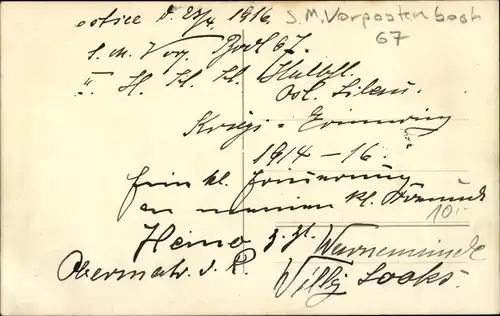 ostsee d. 23/4. 1916. S. M. Vorpostenboot
67
S. M. Vog. Bootl 67.
II H. Fl. Fl. Halbfl.
Kriegs = Erinnerung
1914 - 16.
Zur kl. Erinnerung
an meinen kl. Freund
10,-
Heino z. Zt. Warnemünde
Obermatr. d. R. Willy Looks.